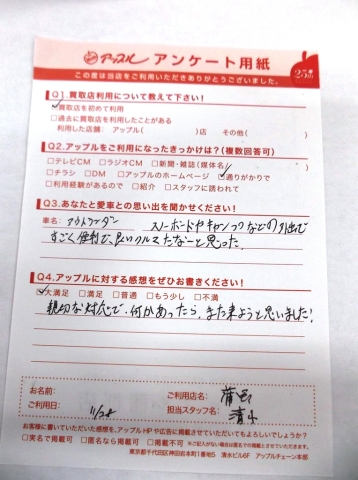 アップル アンケート用紙
25th
この度は当店をご利用いただきありがとうございました。
Q1.買取店利用について教えて下さい!
☑買取店を初めて利用
□過去に買取店を利用したことがある
利用した店舗: アップル( )店 その他( )
Q2.アップルをご利用になったきっかけは?(複数回答可)
□テレビCM □ラジオCM □新聞・雑誌(媒体名 )
□チラシ □DM □アップルのホームページ ☑通りがかりで
□利用経験があるので □紹介 □スタッフに誘われて
Q3.あなたと愛車との思い出を聞かせください!
車名: アウトランダー スノーボードやキャンプなどの外出で
すごく便利で、良いクルマだなーと思った。
Q4.アップルに対する感想をぜひお書きください!
☑大満足 □満足 □普通 □もう少し □不満
親切な対応で、何かあったら、また来ようと思いました!
お名前:
ご利用店名:
ご利用日: 11/28
担当スタッフ名: 清水
お客様に書いていただいた感想を、アップルHPや広告に掲載させていただいてもよろしいでしょうか?
□実名で掲載可 □匿名なら掲載可 □掲載不可 ※ご記入がない場合は匿名での掲載とさせていただきます。
東京都千代田区神田岩本町1番地5 清水ビル6F アップルチェーン本部